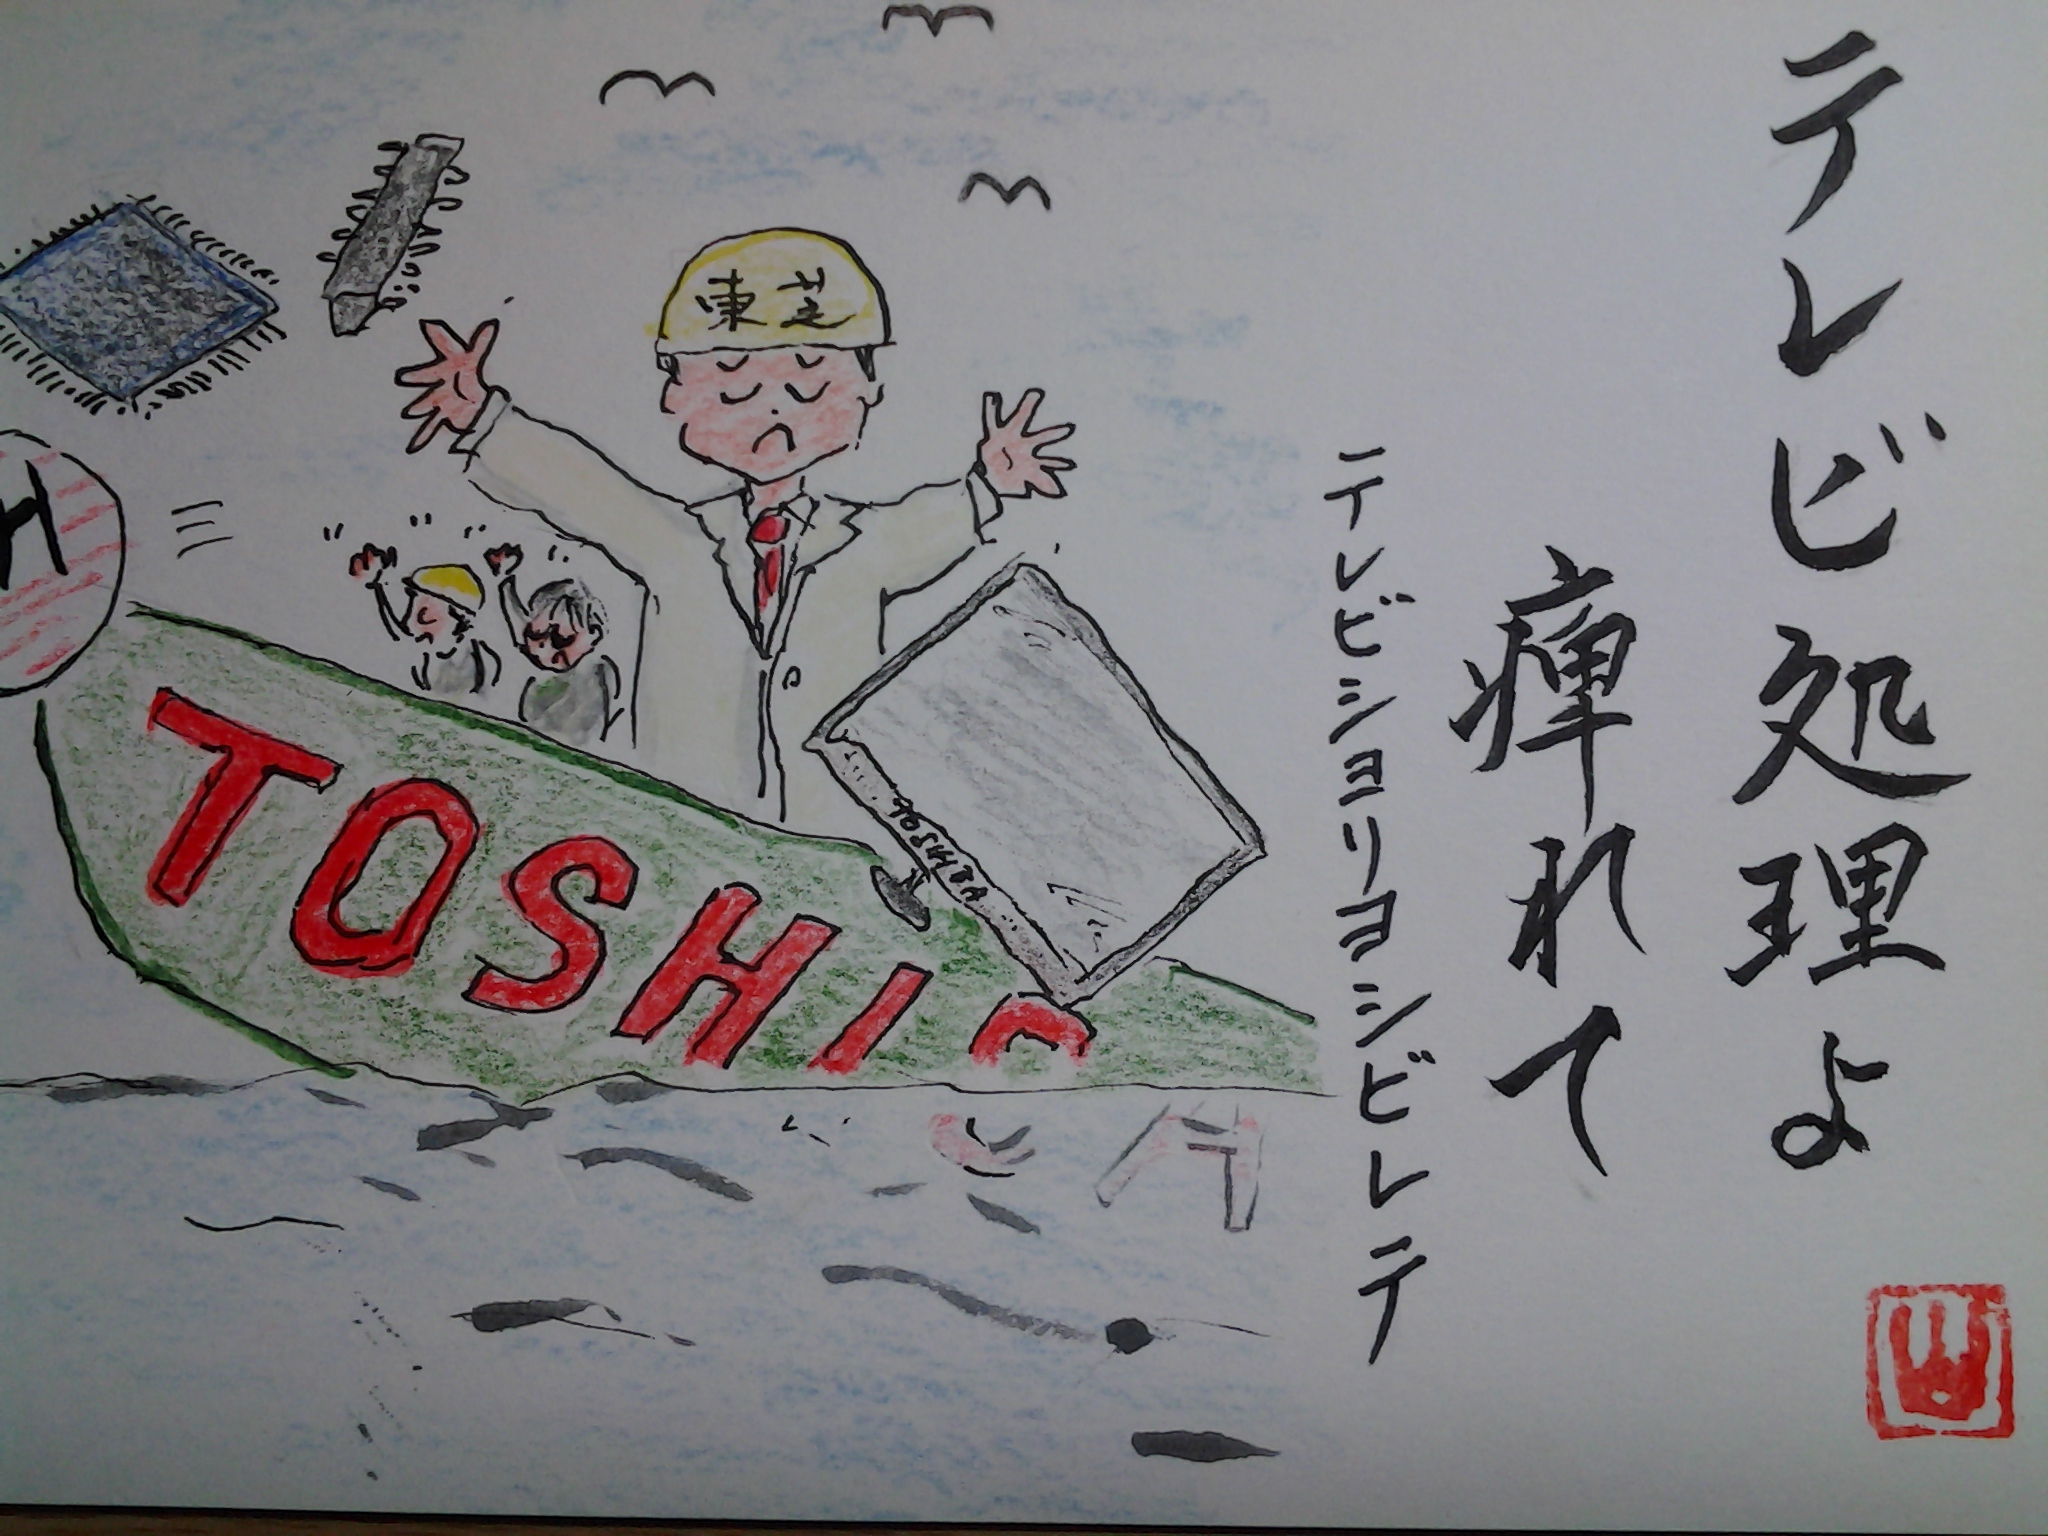 テレビ処理よ
痺れて
テレビシヨリヨシビレテ
東芝
H
TOSHI
TOSHIBA